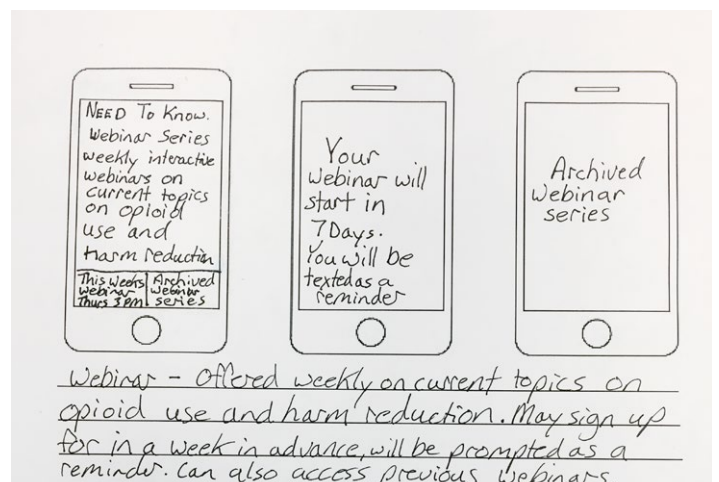 NEED To Know.
Webinar Series
weekly interactive
webinars on
current topics
on opioid
use and
harm reduction
This Weeks
Webinar
Thurs 3pm
Archived
Webinar
series
Your
Webinar will
start in
7 Days.
You will be
texted as a
reminder
Archived
Webinar
series
Webinar - Offered weekly on current topics on
opioid use and harm reduction. May sign up
for in a week in advance, will be prompted as a
reminder. Can also access previous webinars